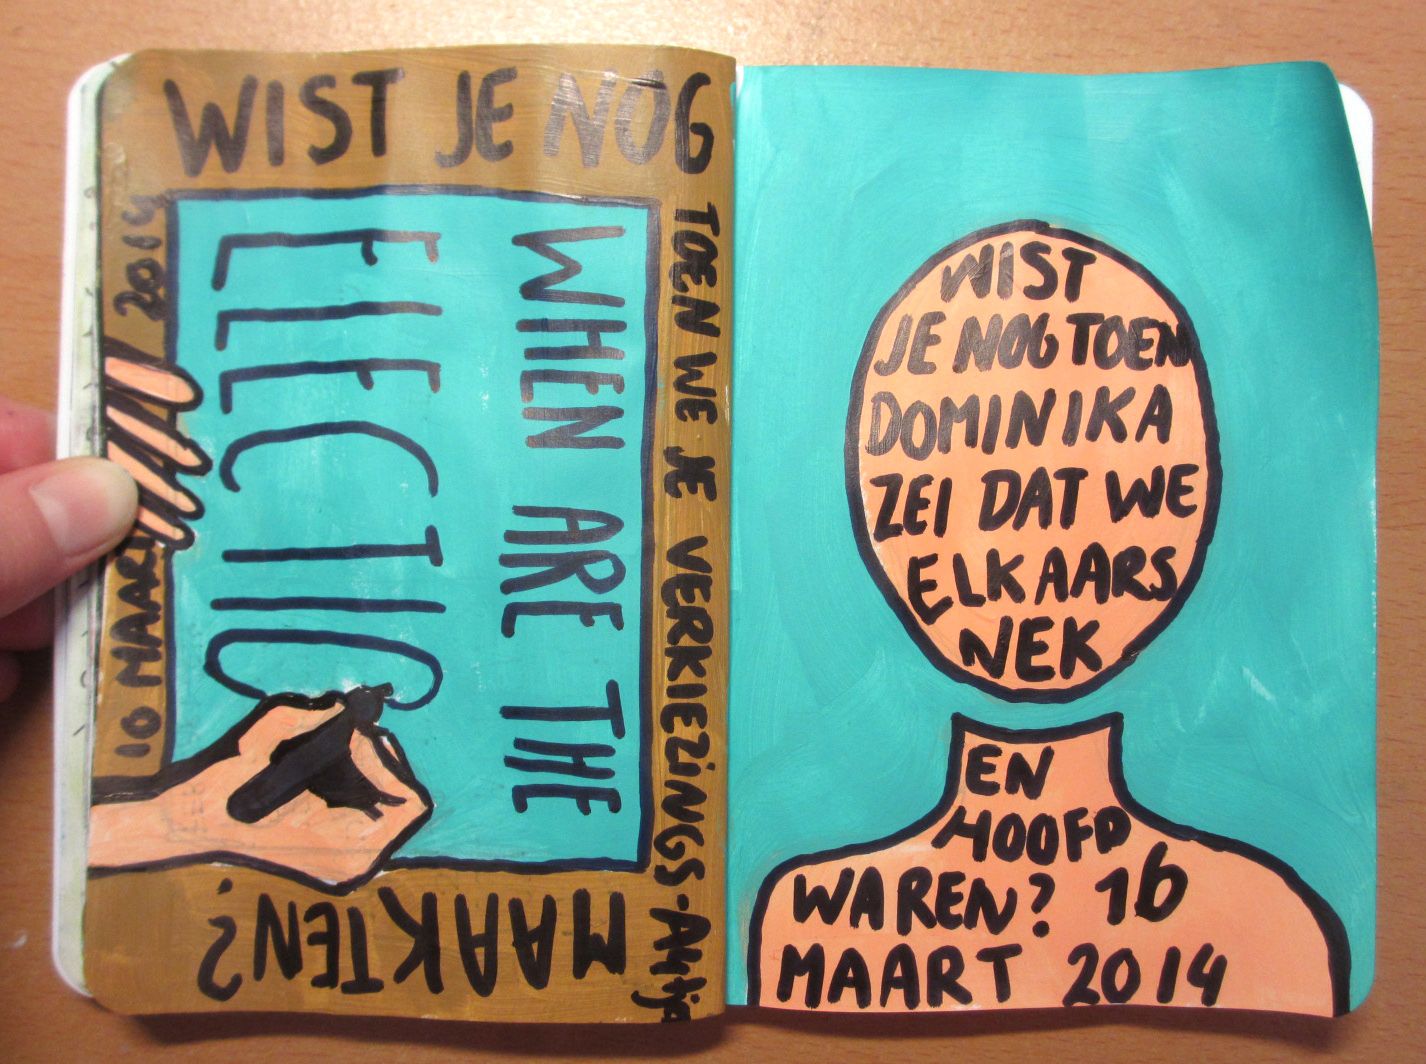 WIST JE NOG
TOEN WE JE VERKIEZINGS-A4tje
MAAKTEN?
10 MAAR 2014
WHEN ARE THE
ELECTIO
WIST
JE NOG TOEN
DOMINIKA
ZEI DAT WE
ELKAARS
NEK
EN
HOOFD
WAREN? 16
MAART 2014